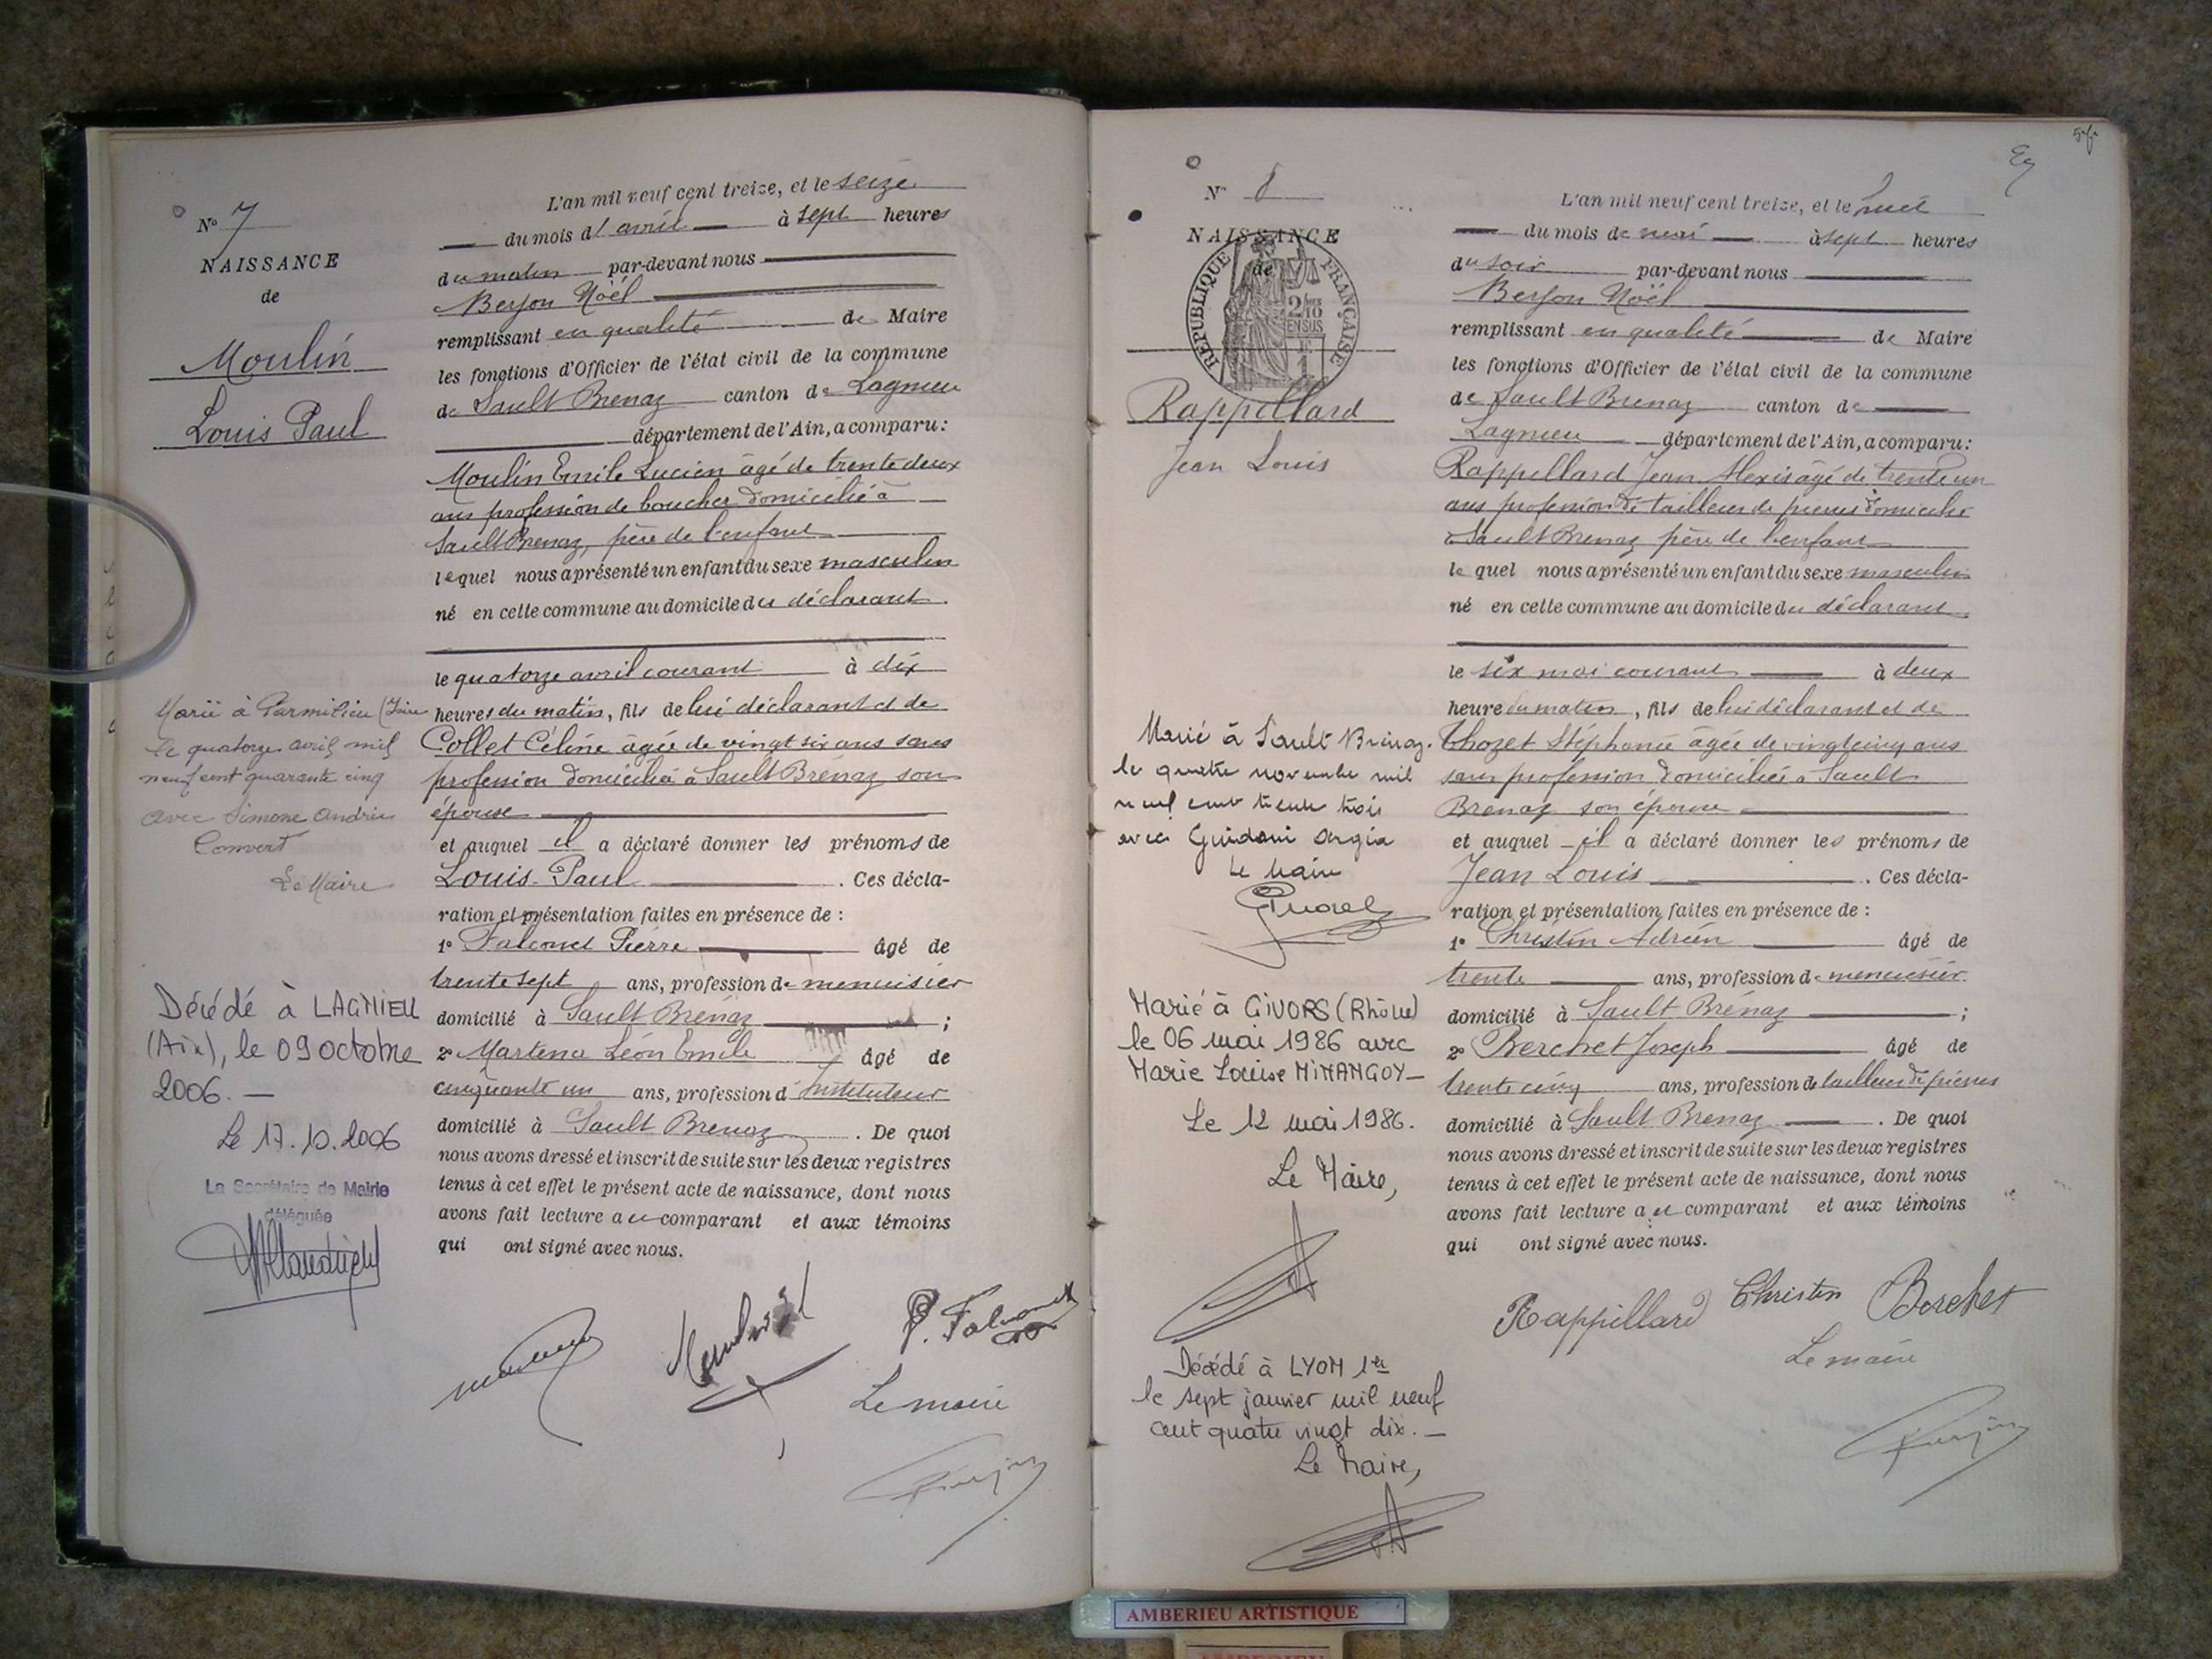 N° 7
NAISSANCE
de
Moulin
Louis Paul
Marié à Parmilieu (Isère
le quatorze avril mil
neuf cent quarante cinq
avec Simone Andrée
Convert
Le Maire
Décédé à LAGNIEU
(Ain), le 09 octobre
2006. —
Le 17.10.2006
La Secrétaire de Mairie
déléguée
L'an mil neuf cent treize, et le seize
du mois d'avril à sept heures
du matin par-devant nous
Berjon Noël
remplissant en qualité de Maire
les fonctions d'Officier de l'état civil de la commune
de Sault Brenaz canton de Lagnieu
département de l'Ain, a comparu:
Moulin Emile Lucien âgé de trente deux
ans profession de boucher domicilié à
Sault Brenaz, père de l'enfant
lequel nous a présenté un enfant du sexe masculin
né en cette commune au domicile du déclarant
le quatorze avril courant à dix
heures du matin, fils de lui déclarant et de
Collet Céline âgée de vingt six ans sans
profession domiciliée à Sault Brénaz son
épouse
et auquel il a déclaré donner les prénoms de
Louis Paul. Ces décla-
ration et présentation faites en présence de :
1° Falconet Pierre âgé de
trente sept ans, profession de menuisier
domicilié à Sault Brénaz ;
2° Martena Léon Emile âgé de
cinquante un ans, profession d'Instituteur
domicilié à Sault Brenaz. De quoi
nous avons dressé et inscrit de suite sur les deux registres
tenus à cet effet le présent acte de naissance, dont nous
avons fait lecture au comparant et aux témoins
qui ont signé avec nous.
P. Falconet
Le maire
N° 8
NAISSANCE
de
RÉPUBLIQUE FRANÇAISE
2/10
EN SUS
Rappillard
Jean Louis
Marié à Sault Brénaz.
le quatre novembre mil
neuf cent trente trois
avec Guidoni Argia
Le Maire
Marié à GIVORS (Rhône)
le 06 mai 1986 avec
Marie Louise MINANGOY—
Le 12 mai 1986.
Le Maire,
Décédé à LYON 1er
le sept janvier mil neuf
cent quatre vingt dix. —
Le Maire,
L'an mil neuf cent treize, et le huit
du mois de mai à sept heures
du soir par-devant nous
Berjon Noël
remplissant en qualité de Maire
les fonctions d'Officier de l'état civil de la commune
de Sault Brenaz canton de
Lagnieu département de l'Ain, a comparu:
Rappillard Jean Alexis âgé de trente un
ans profession de tailleur de pierres domicilié
à Sault Brenaz père de l'enfant
lequel nous a présenté un enfant du sexe masculin
né en cette commune au domicile du déclarant
le six mai courant à deux
heure du matin, fils de lui déclarant et de
Thozet Stéphanie âgée de vingt cinq ans
sans profession domiciliée à Sault
Brenaz son épouse
et auquel il a déclaré donner les prénoms de
Jean Louis. Ces décla-
ration et présentation faites en présence de :
1° Christin Adrien âgé de
trente ans, profession de menuisier
domicilié à Sault Brénaz ;
2° Berchet Joseph âgé de
trente cinq ans, profession de tailleur de pierres
domicilié à Sault Brenaz. De quoi
nous avons dressé et inscrit de suite sur les deux registres
tenus à cet effet le présent acte de naissance, dont nous
avons fait lecture au comparant et aux témoins
qui ont signé avec nous.
Rappillard Christin Berchet
Le maire
AMBERIEU ARTISTIQUE
AMBERIEU